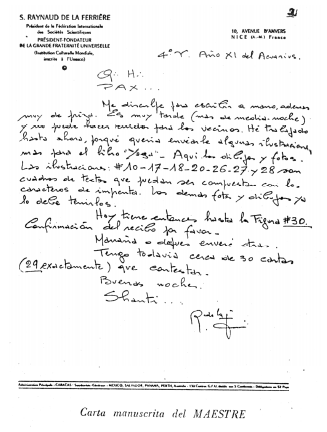 S. RAYNAUD DE LA FERRIÈRE
Président de la Fédération Internationale
des Sociétés Scientifiques
PRÉSIDENT-FONDATEUR
DE LA GRANDE FRATERNITÉ UNIVERSELLE
(Institution Culturelle Mondiale,
inscrite à l'Unesco)
10, AVENUE D'ANVERS
NICE (A.-M.) France
Año XI del Acuarius.
Q∴ H∴
PAX...
Me disculpe para escribir a mano, ademas
muy de prisa. Es muy tarde (mas de media-noche)
y no puede hacer ruido para los vecinos. Hé trabajado
hasta ahora, porqué queria enviarle algunas ilustraciones
mas para el libro "Yoga". Aqui los dibujos y fotos.
Las ilustraciones: #10-17-18-20-26-27 y 28 son
cuadros de textos que puedan ser compuesta con los
caracteres de imprenta. Los demas fotos y dibujos ya
lo debe tenerlos.
Hoy tiene entonces hasta la Figura #30.
Confirmación del recibo por favor.
Mañana o despues enveré otra...
Tengo todavia cerca de 30 cartas
(29 exactamente) que contestar.
Buenas noches.
Shanti...
Carta manuscrita del MAESTRE